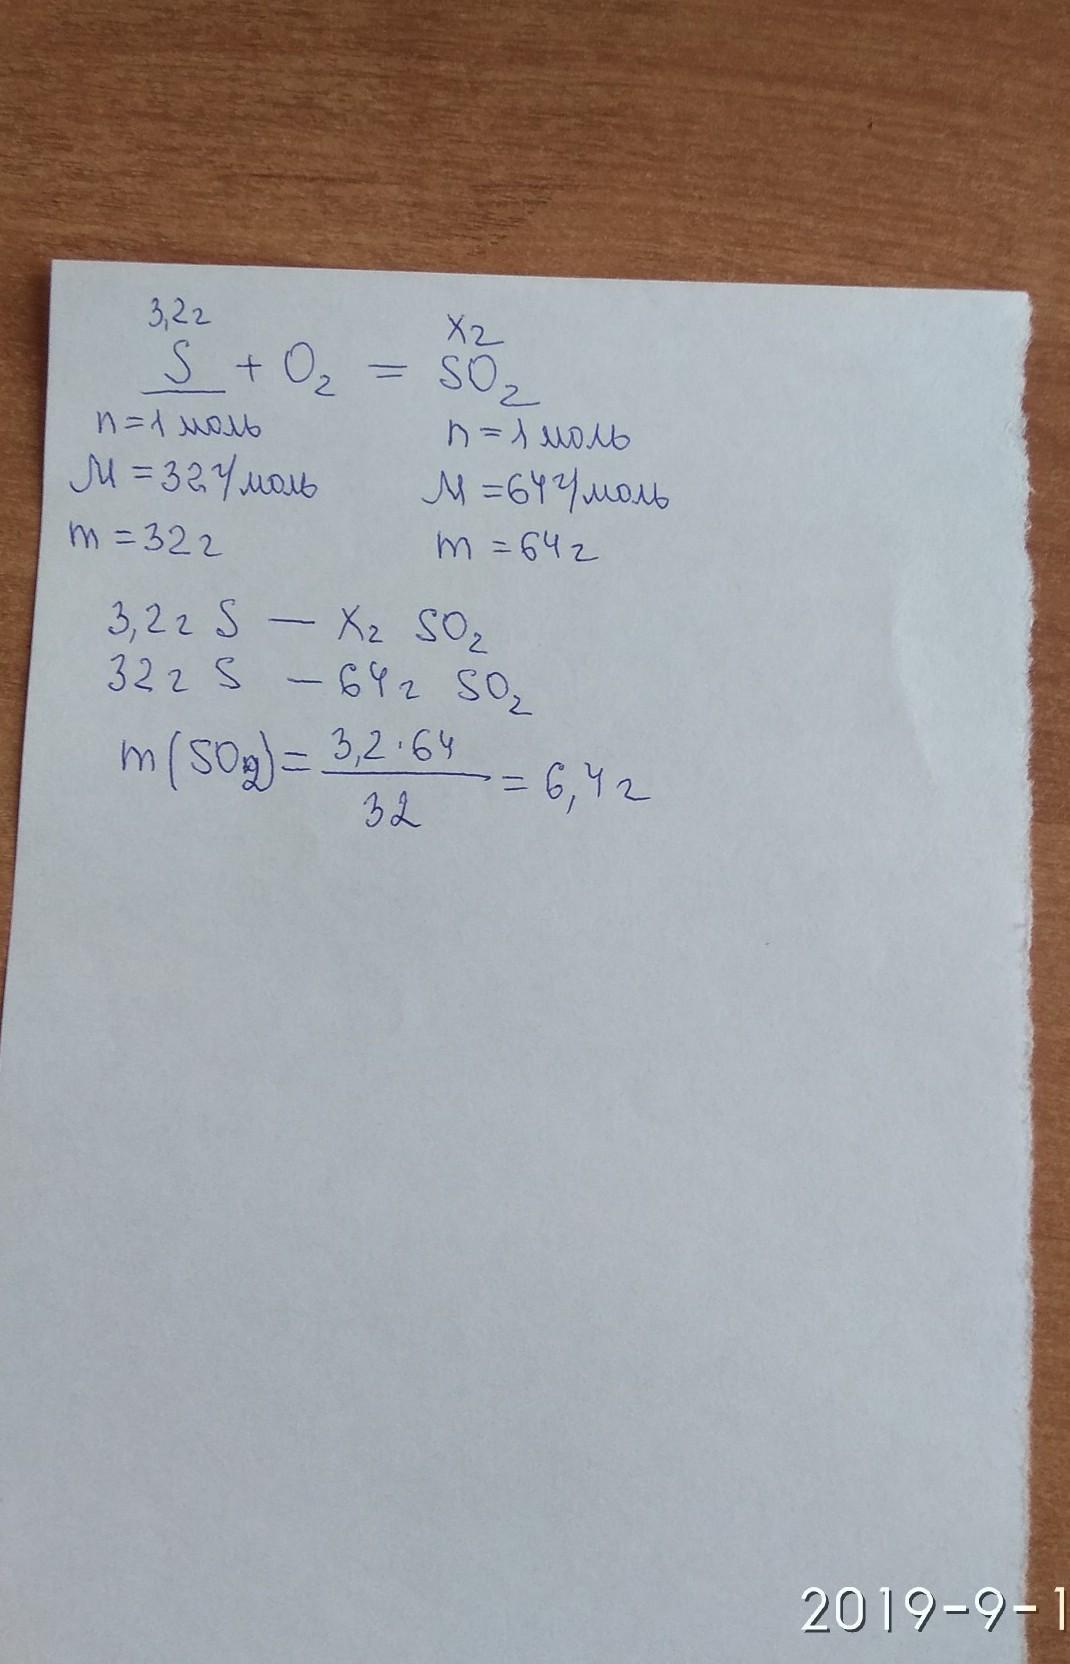 3,2г
xг
S + O₂ = SO₂
n=1 моль n=1 моль
M=32г/моль M=64г/моль
m=32г m=64г
3,2г S — xг SO₂
32г S — 64г SO₂
m(SO₂)= 3,2·64 / 32 = 6,4г
2019-9-1